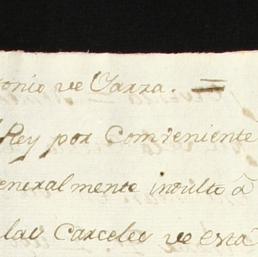 tonio de Yarza. =
Rey por Comveniente
eneralmente indulto â
las Carceles de esta